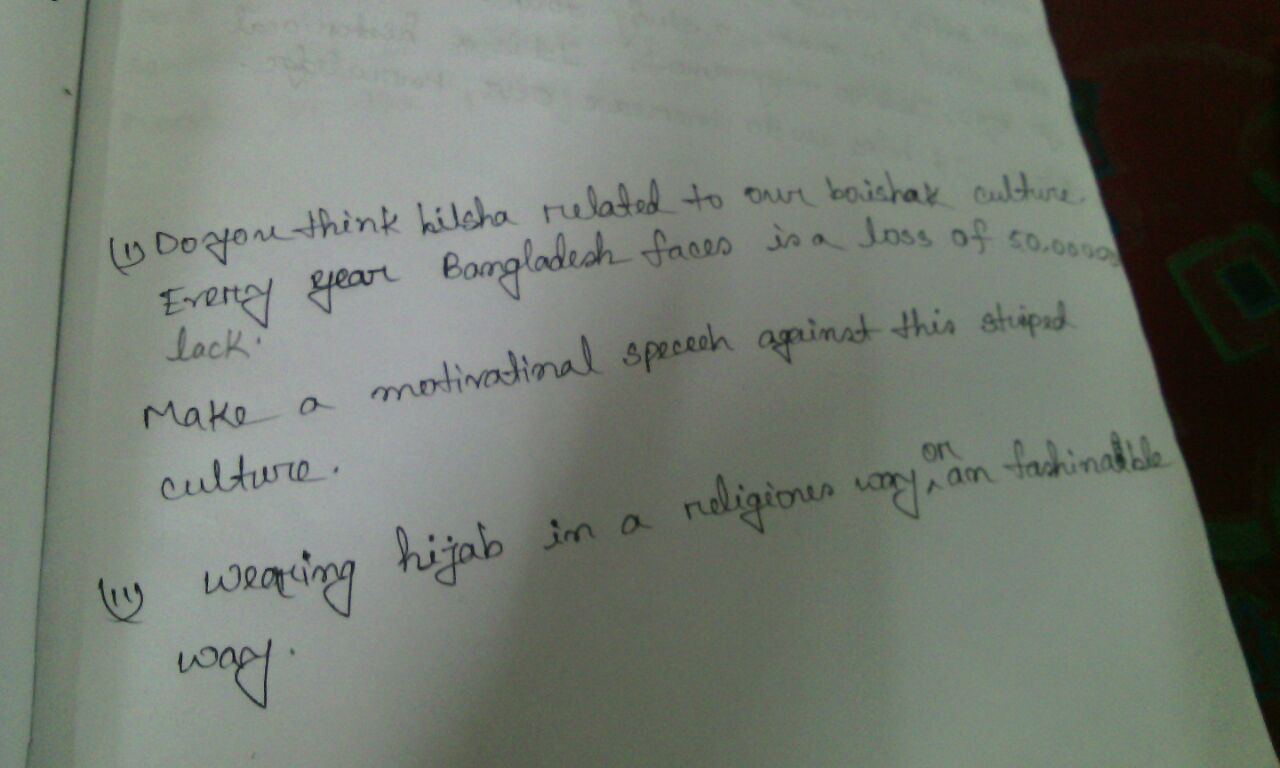 (i) Do you think hilsha related to our boishak culture.
Every year Bangladesh faces is a loss of 50.00000
lack.
Make a motivatinal speceeh against this striped
culture.
(ii) wearing hijab in a religiones way on an fashinable
way.